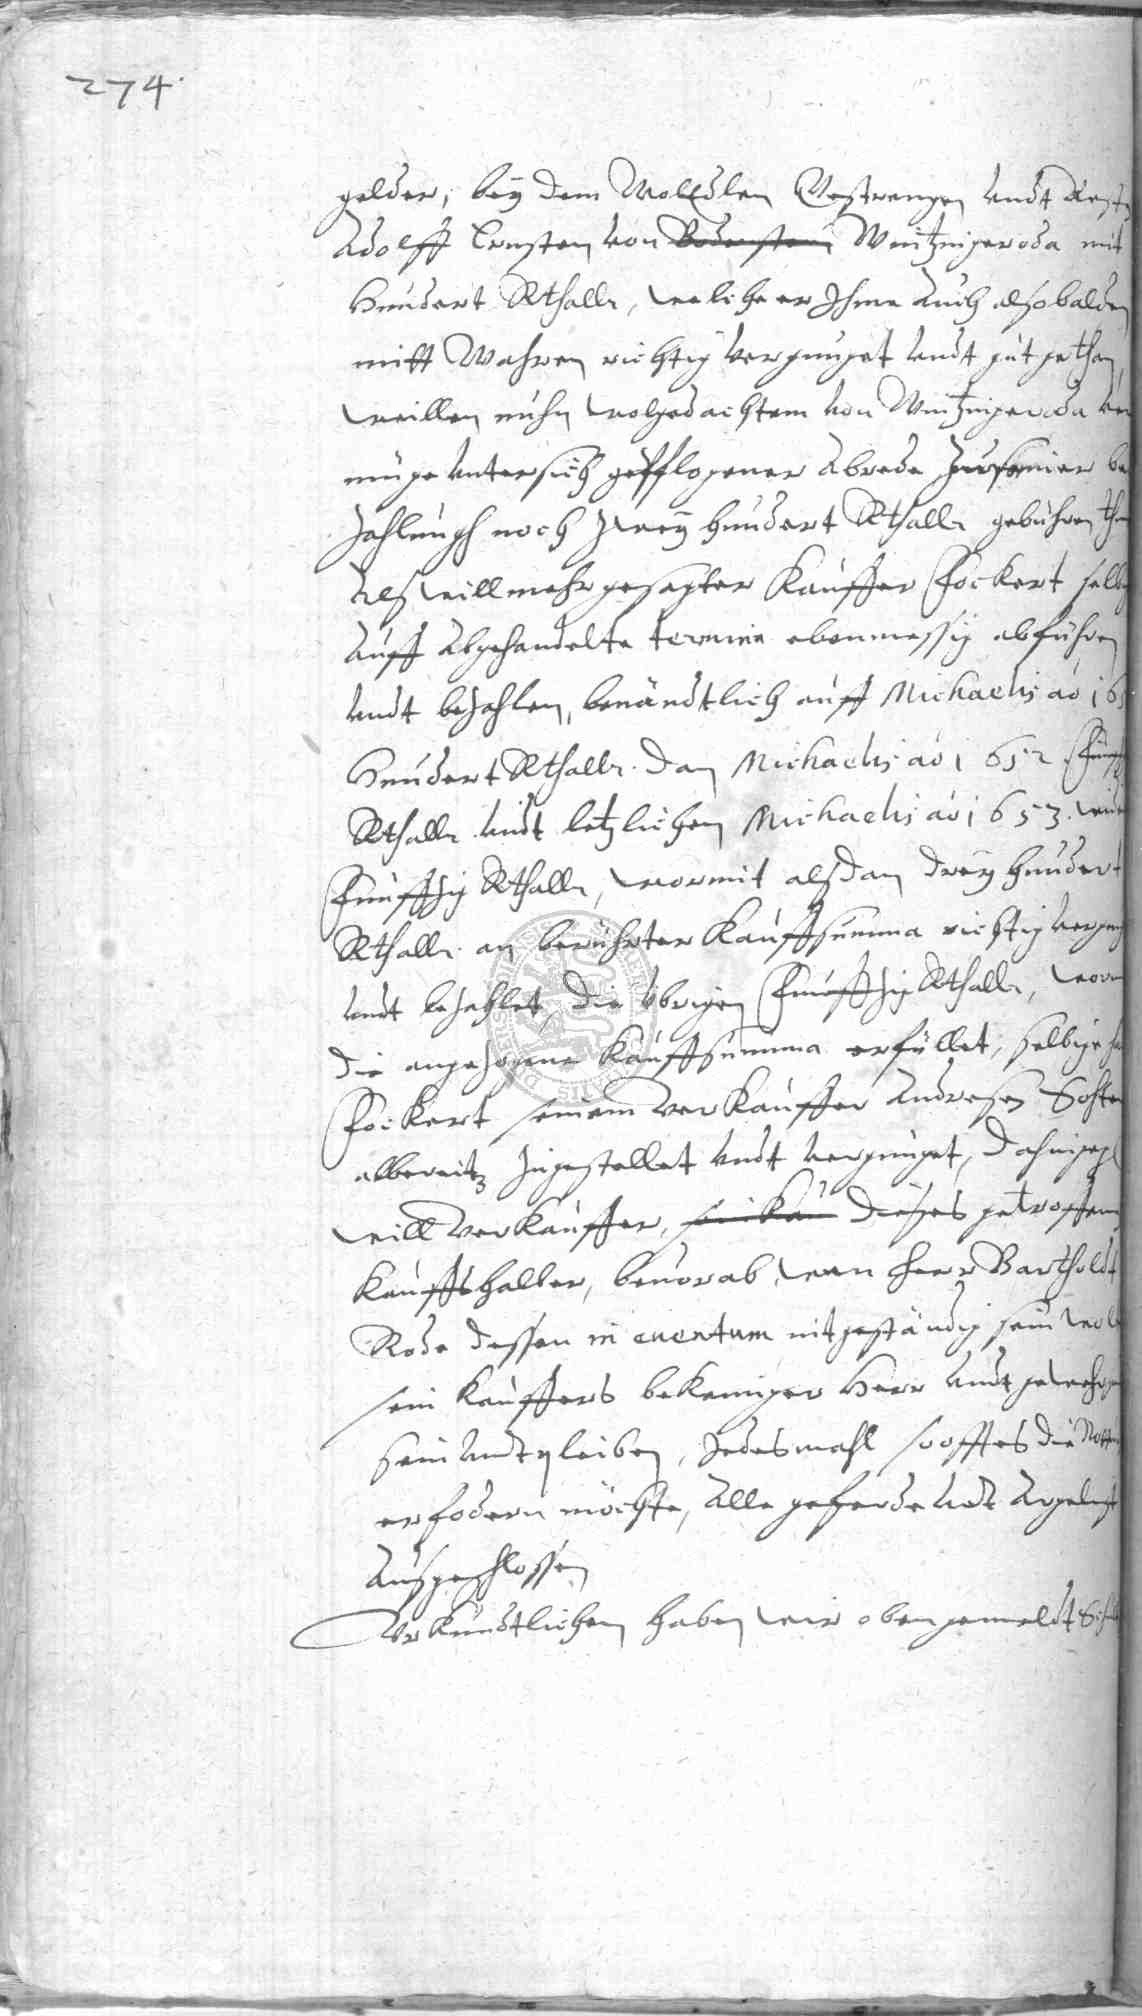 274.
gelder, bey dem WolEdlen Gestrengen undt Vest
Adolff Ernsten von Bodenstein Wintzingeroda mit
Hundert Rthallr, welche er Ihme auch alsobalden
mitt Wahren richtig vergnuget undt gut gethan,
weillen nuhn wolgedachtem von Wintzingeroda
muge unter sich gepflogener Abrede zu seiner be
zahlungh noch zwey hundert Rthallr gebuhren
Alß will mehr gesagter Kauffer Fockert selbe
Auff abgehandelte termine ebenmessig abfuhren
undt bezahlen, benändtlich auff Michaelis ao 165
Hundert Rthallr. Dan Michaelis ao 1652 Funff
Rthallr undt letzlichen Michaelis ao 1653.
Funffzig Rthallr, wormit alßdan drey hundert
Rthallr. an beruhrter Kauffsumma richtig vergnug
undt bezahlet, die übrigen Funffzig Rthallr, worm
die angezogene Kauffsumma erfüllet, selbige ha
Fockert seinem verkauffer Andresen
albereitz zugestellet undt vergnuget, Dahingeg
will verkauffer, sein kau dieses getroffenen
Kauffshalber, bevorab, wan Herr Bartholdt
Rode dessen in eventum nit geständig sein wol
sein Kauffers bekenniger Herr undt gewehr
sein undt pleiben, Jedesmahl so offt es die Nott
erfodern möchte, Alle geferde undt Argelist
Außgeschlossen
Urkundtlichen haben wir obengemeldt